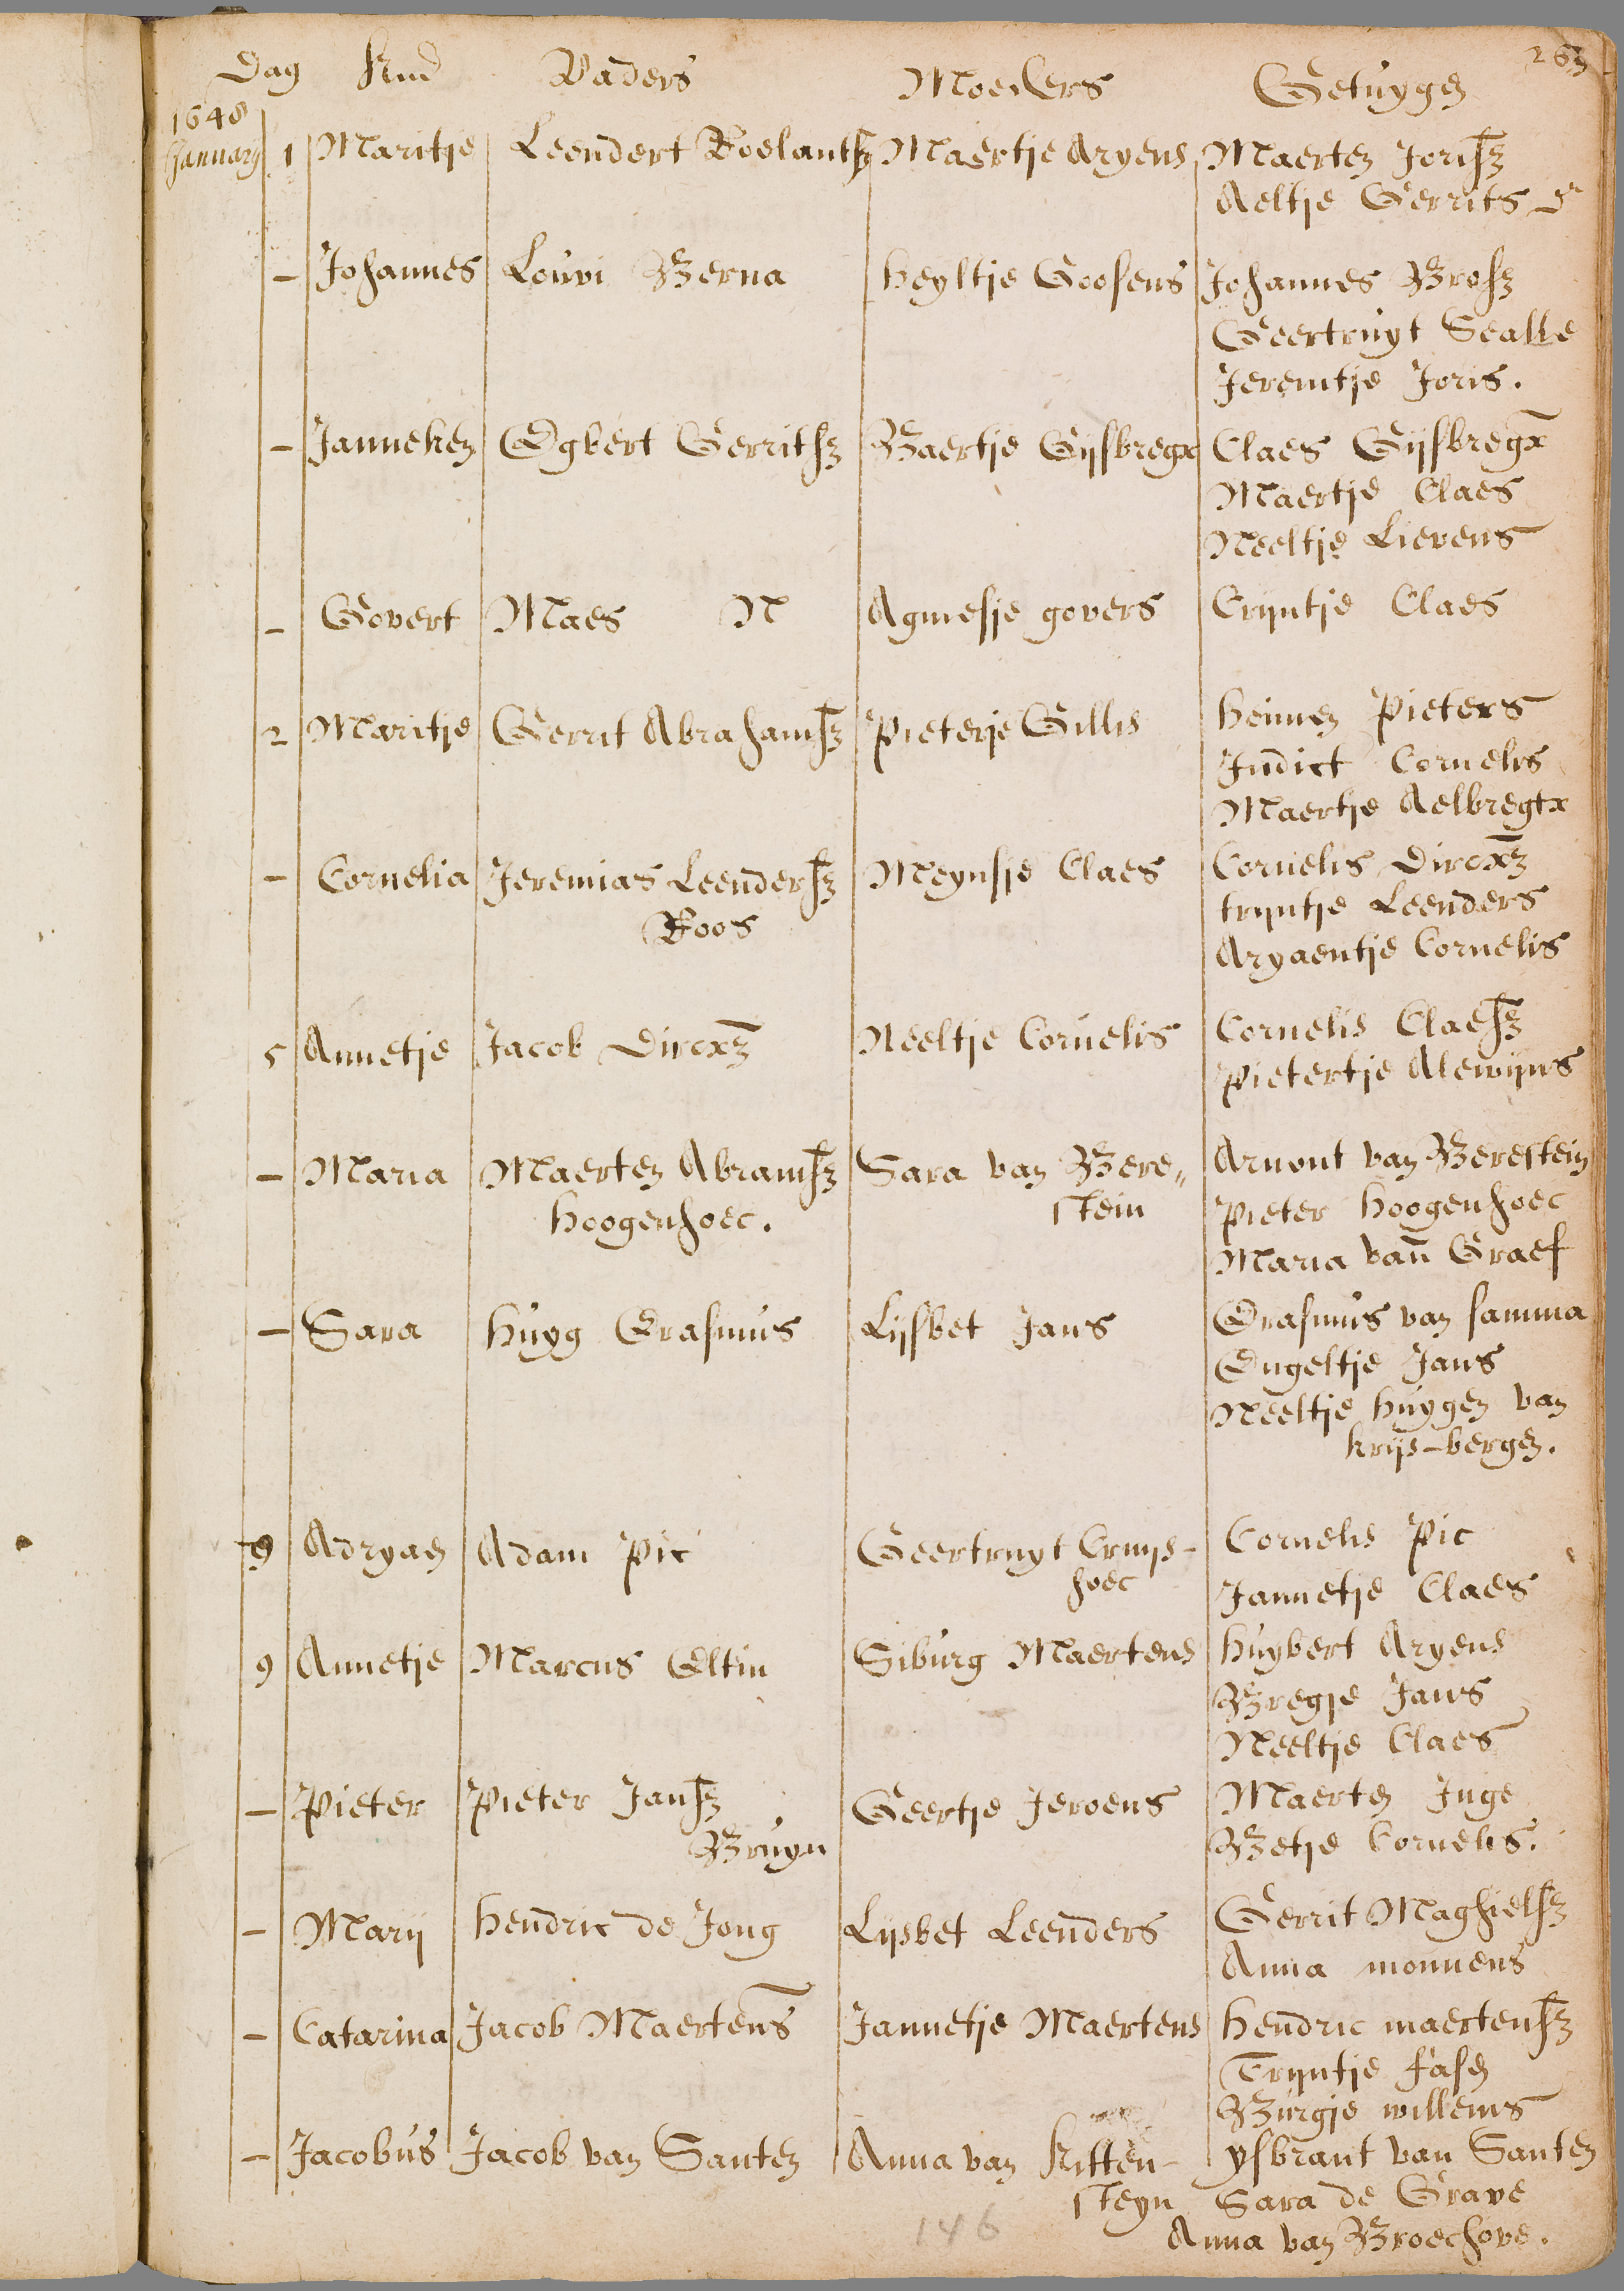 263
Dag Kind Vaders Moeders Getuygen
1648
January 1 Maritje Leendert Roelantsz Maertje Aryens Maerten Jorisz
Aeltje Gerrits dr
- Johannes Louvi Berna Heyltje Goosens Johannes Brosz
Geertruyt Sealle
Jeremtje Joris.
- Janneken Egbert Gerritsz Baertje Gijsbregx Claes Gijsbregx
Maertje Claes
Neeltje Lievens
- Govert Maes N Agniesje govers Crijntje Claes
2 Maritje Gerrit Abrahamsz Pieterje Gillis Heinen Pieters
Judict Cornelis
Maertje Aelbregtx
- Cornelia Jeremias Leendersz Meynsje Claes Cornelis Dircxz
Roos trijntje Leenders
Aryaentje Cornelis
5 Annetje Jacob Dircxz Neeltje Cornelis Cornelis Claesz
Pietertje Alewijns
- Maria Maerten Abramsz Sara van Bere„ Arnout van Berestein
Hoogenhoec. stein Pieter Hoogenhoec
Maria vann Graef
- Sara Huyg Erasmus Lijsbet Jans Erasmus van samma
Engeltje Jans
Neeltje Huygen van
krijs-bergen.
9 Adryaen Adam Pic Geertruyt Cruijs- Cornelis Pic
hoec Jannetje Claes
9 Annetje Marcus Eltin Siburg Maertens Huybert Aryens
Bregje Jans
Neeltje Claes
- Pieter Pieter Jansz Geertje Jeroens Maerten Juge
Bruyn Betje Cornelis.
- Marij Hendric de Jong Lijsbet Leenders Gerrit Maghielsz
Anna monnens
- Catarina Jacob Maertens Jannetje Maertens Hendric maertensz
Trijntje fasen
Burgje willems
- Jacobus Jacob van Santen Anna van Ritten- ysbrant van Santen
steyn Sara de Grave
146 Anna van Broechove.